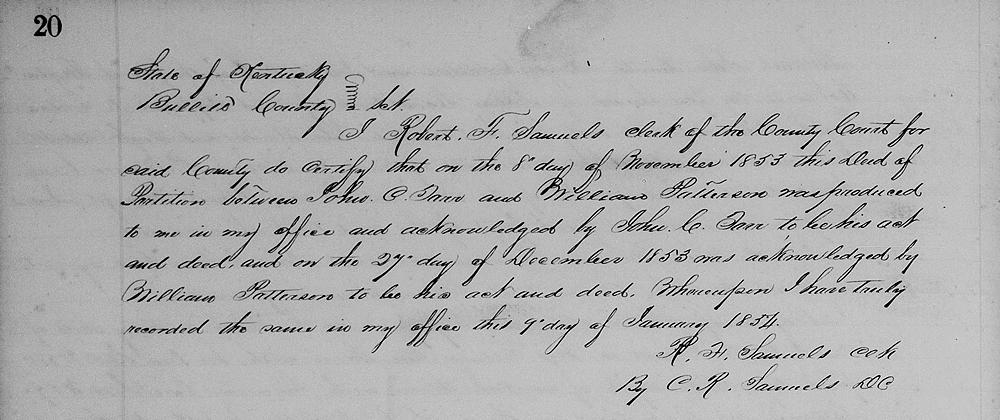 20
State of Kentucky
Bullitt County Sct.
I Robert. F. Samuels clerk of the County Court for
said County do certify that on the 8" day of November 1853 this Deed of
Partition between John. C. Farr and William Patterson was produced
to me in my office and acknowledged by John. C. Farr to be his act
and deed, and on the 27" day of December 1853 was acknowledged by
William Patterson to be his act and deed. Whereupon I have truly
recorded the same in my office this 9" day of January 1854.
R. F. Samuels
By C. R. Samuels DC